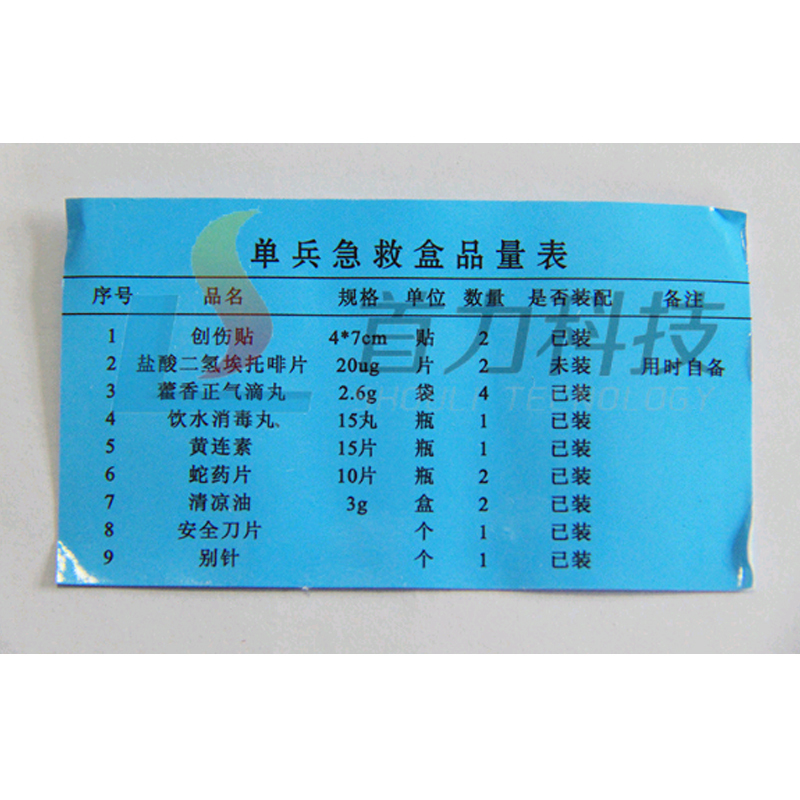 单兵急救盒品量表
序号 品名 规格 单位 数量 是否装配 备注
1 创伤贴 4*7cm 贴 2 已装
2 盐酸二氢埃托啡片 20ug 片 2 未装 用时自备
3 藿香正气滴丸 2.6g 袋 4 已装
4 饮水消毒丸、 15丸 瓶 1 已装
5 黄连素 15片 瓶 1 已装
6 蛇药片 10片 瓶 2 已装
7 清凉油 3g 盒 2 已装
8 安全刀片 个 1 已装
9 别针 个 1 已装
首力科技
SHOULI TECNOLOGY